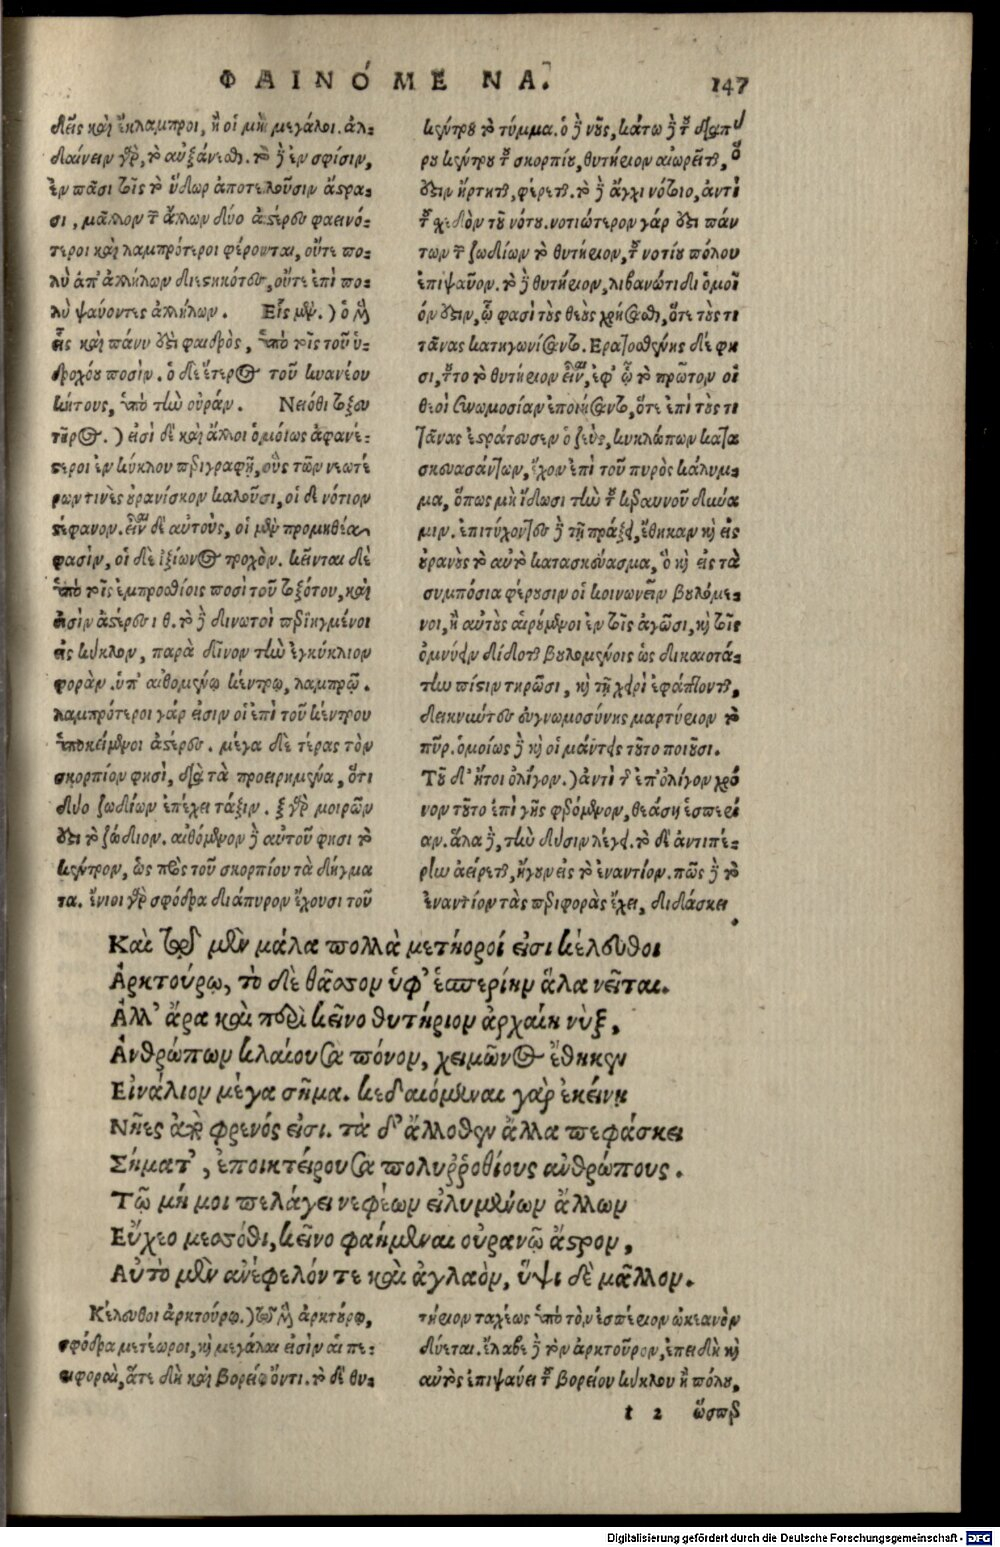 ΦΑΙΝΌΜΕΝΑ. 147
δεῖς καὶ ἔκλαμπροι, ἢ οἱ μὴ μεγάλοι. ἀλ-
δαίνειν γὰρ, τὸ αὐξάνεσθαι. τὸ δὲ ἐν σφίσιν,
ἐν πᾶσι τοῖς τὸ ὕδωρ ἀποτελοῦσιν ἄστρα-
σι, μᾶλλον τῶν ἄλλων δύο ἀστέρες φαεινό-
τεροι καὶ λαμπρότεροι φέρονται, οὔτε πο-
λὺ ἀπ' ἀλλήλων διεστηκότες, οὔτε ἐπὶ πο-
λὺ ψαύοντες ἀλλήλων. Εἷς μὲν.) ὁ μὲν
εἷς καὶ πάνυ ἐστὶ φαιδρὸς, ὑπὸ τοῖς τοῦ ὑ-
δροχόου ποσίν. ὁ δὲ ἕτερος τοῦ κυανέου
κήτους, ὑπὸ τὴν οὐράν. Νειόθι τοξευ
τῆρος.) εἰσὶ δὲ καὶ ἄλλοι ὁμοίως ἀφανέ-
στεροι ἐν κύκλου περιγραφῇ, οὓς τῶν νεωτέ
ρων τινὲς οὐρανίσκον καλοῦσι, οἱ δὲ νότιον
στέφανον. εἶναι δὲ αὐτοὺς, οἱ μὲν προμηθέα
φασὶν, οἱ δὲ ἰξίωνος τροχὸν. κεῖνται δὲ
ὑπὸ τοῖς ἐμπροσθίοις ποσὶ τοῦ τοξότου, καὶ
εἰσὶν ἀστέρες ι θ. τὸ δὲ δινωτοὶ περιηγμένοι
εἰς κύκλον, παρὰ δῖνον τὴν ἐγκύκλιον
φορὰν. ὑπ' αἰθομένῳ κέντρῳ, λαμπρῷ.
λαμπρότεροι γάρ εἰσιν οἱ ἐπὶ τοῦ κέντρου
ὑποκείμενοι ἀστέρες. μέγα δὲ τέρας τὸν
σκορπίον φησὶ, διὰ τὰ προειρημένα, ὅτι
δύο ζωδίων ἐπέχει τάξιν. ξ γὰρ μοιρῶν
ἐστὶ τὸ ζώδιον. αἰθόμενον δὲ αὐτοῦ φησι τὸ
κέντρον, ὡς πρὸς τοῦ σκορπίου τὰ δήγμα
τα. ἔνιοι γὰρ σφόδρα διάπυρον ἔχουσι τοῦ
κέντρου τὸ τύμμα. ὁ δὲ νοῦς, κάτω δὲ τοῦ διαπύ
ρου κέντρου τοῦ σκορπίου, θυτήριον αἰωρεῖται, ὅ
ἐστιν ἤρτηται, φέρεται. τὸ δὲ ἄγχι νότοιο, ἀντὶ
τοῦ σχεδὸν τοῦ νότου. νοτιώτερον γάρ ἐστι πάν
των τῶν ζωδίων τὸ θυτήριον, τοῦ νοτίου πόλου
ἐπιψαῦον. τὸ δὲ θυτήριον, λιβανωτιδι ὁμοῖ
όν ἐστιν, ᾧ φασὶ τοὺς θεοὺς χρήσασθαι, ὅτε τοὺς τι
τᾶνας κατηγωνίσαντο. Ερατοσθένης δέ φη
σι, τοῦτο τὸ θυτήριον εἶναι, ἐφ' ᾧ τὸ πρῶτον οἱ
θεοὶ συνωμοσίαν ἐποιήσαντο, ὅτε ἐπὶ τοὺς τι
τᾶνας ἐστράτευσεν ὁ ζεὺς, κυκλώπων κατα
σκευασάντων, ἔχον ἐπὶ τοῦ πυρὸς κάλυμ-
μα, ὅπως μὴ ἴδωσι τὴν τοῦ κεραυνοῦ δύνα
μιν. ἐπιτύχοντες δὲ τῇ πράξει, ἔθηκαν καὶ εἰς
οὐρανοὺς τὸ αὐτὸ κατασκεύασμα, ὃ καὶ εἰς τὰ
συμπόσια φέρουσιν οἱ κοινωνεῖν βουλόμε-
νοι, ἢ αὐτοὺς αἱρούμενοι ἐν τοῖς ἀγῶσι, καὶ τοῖς
ὀμνύειν δίδοται βουλομένοις ὡς δικαιοτά-
την πίστιν τηρῶσι, καὶ τῇ χειρὶ ἐφάπτονται,
δεικνύντες εὐγνωμοσύνης μαρτύριον τὸ
πῦρ. ὁμοίως δὲ καὶ οἱ μάντεις τοῦτο ποιοῦσι.
Τοῦ δ' ἤτοι ὀλίγον.) ἀντὶ τοῦ ἐπ' ὀλίγον χρό
νον τοῦτο ἐπὶ γῆς φερόμενον, θεάσῃ ἑσπερί
αν. ἅλα δὲ, τὴν δύσιν λέγει. τὸ δὲ ἀντιπέ-
ρην ἀείρεται, ἤγουν εἰς τὸ ἐναντίον. πῶς δὲ τὸ
ἐναντίον τὰς περιφορὰς ἔχει, διδάσκει
Καὶ τοῦ μὲν μάλα πολλὰ μετήοροί εἰσι κέλευθοι
Ἀρκτούρῳ, τὸ δὲ θᾶσσον ὑφ' ἑσπερίην ἅλα νεῖται.
Ἀλλ' ἄρα καὶ περὶ κεῖνο θυτήριον ἀρχαίη νὺξ,
Ἀνθρώπων κλαίουσα πόνον, χειμῶνος ἔθηκεν
Εἰνάλιον μέγα σῆμα. κεδαιόμεναι γὰρ ἐκείνῃ
Νῆες ἀπὸ φρενός εἰσι. τὰ δ' ἄλλοθεν ἄλλα πεφάσκει
Σήματ', ἐποικτείρουσα πολυῤῥοθίους ἀνθρώπους.
Τῷ μή μοι πελάγει νεφέων εἰλυμένων ἄλλων
Εὔχεο μεσσόθι, κεῖνο φαήμεναι οὐρανῷ ἄστρον,
Αὐτὸ μὲν ἀνέφελόν τε καὶ ἀγλαὸν, ὕψι δὲ μᾶλλον.
Κέλευθοι ἀρκτούρῳ.) τῷ μὲν ἀρκτούρῳ,
σφόδρα μετέωροι, καὶ μεγάλαι εἰσὶν αἱ πε-
ριφοραὶ, ἅτε δὴ καὶ βορείῳ ὄντι. τὸ δὲ θυ-
τήριον ταχέως ὑπὸ τὸν ἑσπέριον ὠκεανὸν
δύεται. ἔλαβε δὲ τὸν ἀρκτοῦρον, ἐπειδὴ καὶ
αὐτὸς ἐπιψαύει τοῦ βορείου κύκλου ἢ πόλου,
t 2 ὥσπερ
Digitalisierung gefördert durch die Deutsche Forschungsgemeinschaft - DFG